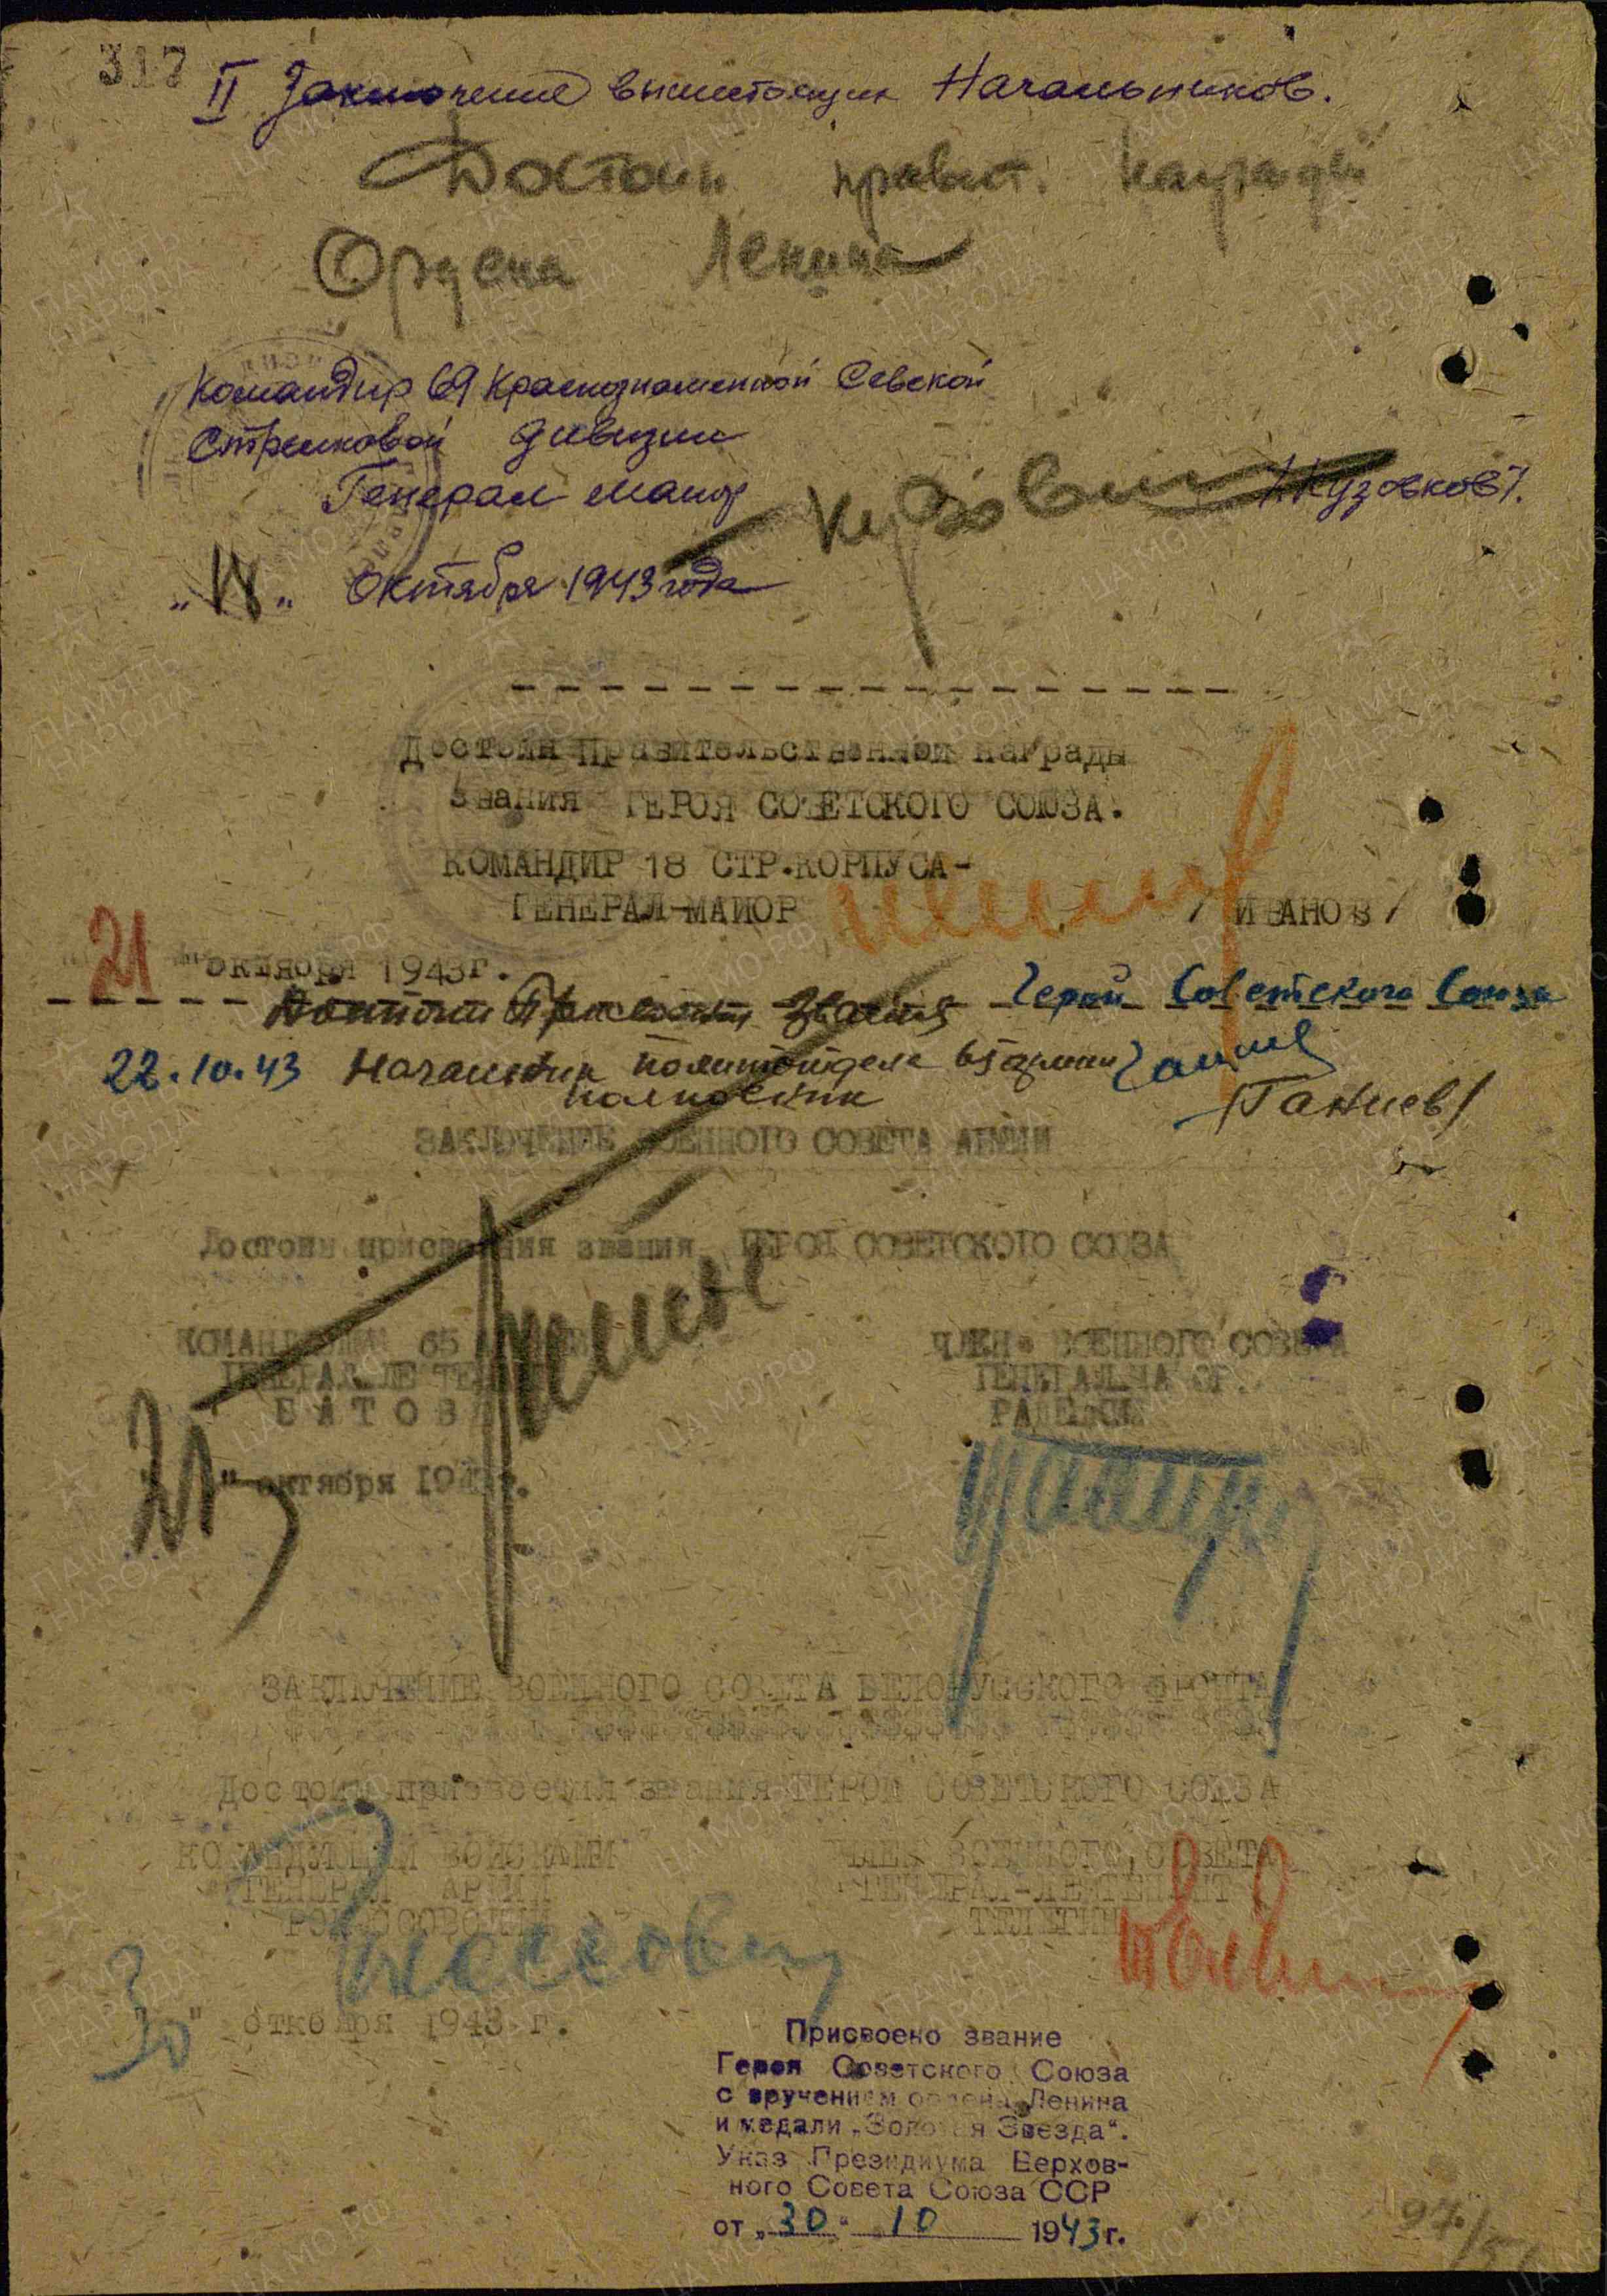 317
II Заключение вышестоящих Начальников.
Достоин правит. награды
Ордена Ленина
Командир 69 Краснознаменной Севской
Стрелковой дивизии
Генерал майор /Кузовков/.
"18" Октября 1943 года
Достоин Правительственной награды
Звания ГЕРОЯ СОВЕТСКОГО СОЮЗА.
КОМАНДИР 18 СТР.КОРПУСА-
ГЕНЕРАЛ-МАЙОР /ИВАНОВ/
21 "октября 1943г.
Достоин звания Герой Советского Союза
22.10.43 Начальник политотдела 65 армии
полковник /Ганиев/
ЗАКЛЮЧЕНИЕ ВОЕННОГО СОВЕТА АРМИИ
Достоин присвоения звания ГЕРОЯ СОВЕТСКОГО СОЮЗА
КОМАНДУЮЩИЙ 65 АРМИЕЙ ЧЛЕН ВОЕННОГО СОВЕТА
ГЕНЕРАЛ-ЛЕЙТЕНАНТ ГЕНЕРАЛ-МАЙОР
БАТОВ РАДЕЦКИЙ
" октября 194 г.
ЗАКЛЮЧЕНИЕ ВОЕННОГО СОВЕТА БЕЛОРУССКОГО ФРОНТА
Достоин присвоения звания ГЕРОЯ СОВЕТСКОГО СОЮЗА
КОМАНДУЮЩИЙ ВОЙСКАМИ ЧЛЕН ВОЕННОГО СОВЕТА
ГЕНЕРАЛ АРМИИ ГЕНЕРАЛ-ЛЕЙТЕНАНТ
РОКОССОВСКИЙ ТЕЛЕГИН
30" откября 1943 г.
Присвоено звание
Героя Советского Союза
с вручением ордена Ленина
и медали „Золотая Звезда".
Указ Президиума Верхов-
ного Совета Союза ССР
от „30" 10 1943г.